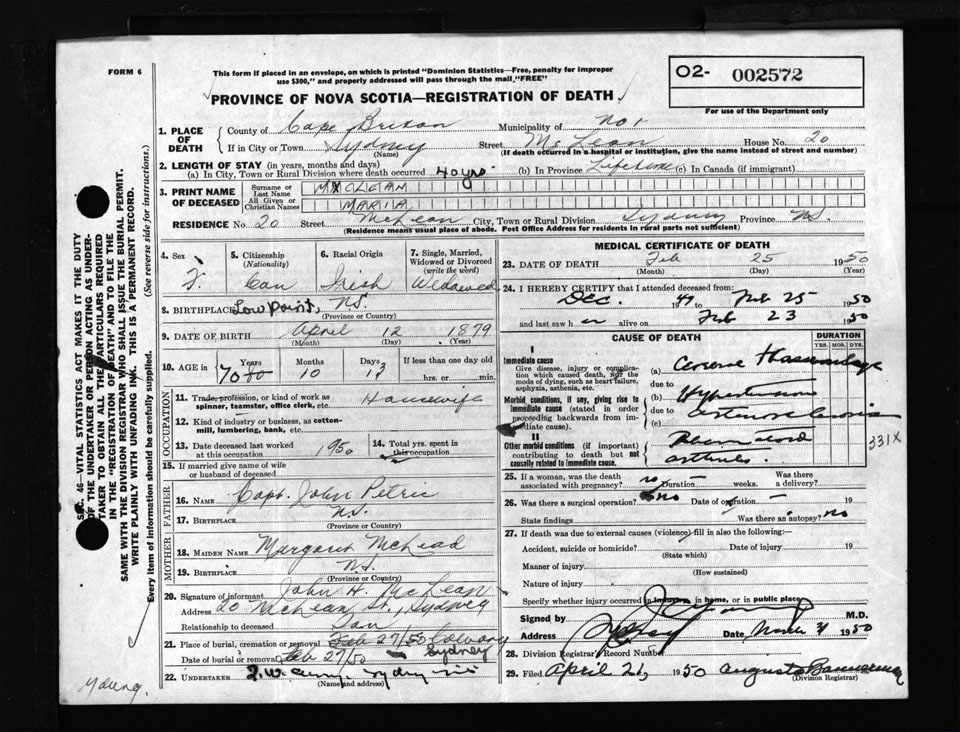 FORM 6
This form if placed in an envelope, on which is printed "Dominion Statistics—Free, penalty for improper
use $300," and properly addressed will pass through the mail "FREE"
O2- 002572
For use of the Department only
PROVINCE OF NOVA SCOTIA—REGISTRATION OF DEATH
1. PLACE OF DEATH
County of Cape Breton Municipality of
If in City or Town Sydney Street McLean House No. 20
(Name) (If death occurred in a hospital or institution, give the name instead of street and number)
2. LENGTH OF STAY (in years, months and days)
(a) In City, Town or Rural Division where death occurred 40 yrs (b) In Province Lifetime (c) In Canada (if immigrant)
3. PRINT NAME OF DECEASED
Surname or Last Name MCLEAN
All Given or Christian Names MARIA
RESIDENCE No. 20 Street McLean City, Town or Rural Division Sydney Province N.S.
(Residence means usual place of abode. Post Office Address for residents in rural parts not sufficient)
4. Sex F.
5. Citizenship (Nationality) Can
6. Racial Origin Irish
7. Single, Married, Widowed or Divorced (write the word) Widowed
8. BIRTHPLACE Low Point, N.S.
(Province or Country)
9. DATE OF BIRTH April 12 1879
(Month) (Day) (Year)
10. AGE in Years 70 Months 10 Days 13 If less than one day old
hrs. or min.
OCCUPATION
11. Trade, profession, or kind of work as Housewife
spinner, teamster, office clerk, etc.
12. Kind of industry or business, as cotton-
mill, lumbering, bank, etc.
13. Date deceased last worked at this occupation 1950
14. Total yrs. spent in this occupation
15. If married give name of wife
or husband of deceased
FATHER
16. NAME Capt. John Petrie
17. BIRTHPLACE N.S.
(Province or Country)
MOTHER
18. MAIDEN NAME Margaret
19. BIRTHPLACE N.S.
(Province or Country)
20. Signature of informant John H. McLean
Address 20 McLean St., Sydney
Relationship to deceased Son
21. Place of burial, cremation or removal Feb 27/50 Calvary
Sydney
Date of burial or removal Feb 27/50
22. UNDERTAKER
(Name and address)
MEDICAL CERTIFICATE OF DEATH
23. DATE OF DEATH Feb 25 1950
(Month) (Day) (Year)
24. I HEREBY CERTIFY that I attended deceased from:
Dec. 1949 to Feb 25 1950
and last saw her alive on Feb 23 1950
CAUSE OF DEATH DURATION
YRS. MOS. DYS.
I
Immediate cause
Give disease, injury or complication which caused death, NOT the mode of dying, such as heart failure, asphyxia, asthenia, etc.
(a) Cerebral Haemorrhage
due to
Morbid conditions, if any, giving rise to immediate cause (stated in order proceeding backwards from immediate cause)
(b) Hypertension
due to arteriosclerosis
(c)
II
Other morbid conditions (if important) contributing to death but not causally related to immediate cause.
Rheumatoid
arthritis.
331X
25. If a woman, was the death associated with pregnancy? no Duration weeks. Was there a delivery?
26. Was there a surgical operation? no Date of operation 19
State findings Was there an autopsy? no
27. If death was due to external causes (violence) fill in also the following:—
Accident, suicide or homicide? Date of injury 19
(State which)
Manner of injury
(How sustained)
Nature of injury
Specify whether injury occurred in industry, in home, or in public place
Signed by M.D.
Address Date March 31 1950
28. Division Registrar's Record Number
29. Filed April 21, 1950
(Division Registrar)
SEC. 46—VITAL STATISTICS ACT MAKES IT THE DUTY
OF THE UNDERTAKER OR PERSON ACTING AS UNDER-
TAKER TO OBTAIN ALL THE PARTICULARS REQUIRED
IN THE "REGISTRATION OF DEATH" AND TO FILE THE
SAME WITH THE DIVISION REGISTRAR WHO SHALL ISSUE THE BURIAL PERMIT.
WRITE PLAINLY WITH UNFADING INK. THIS IS A PERMANENT RECORD.
Every item of information should be carefully supplied. (See reverse side for instructions.)
Young.